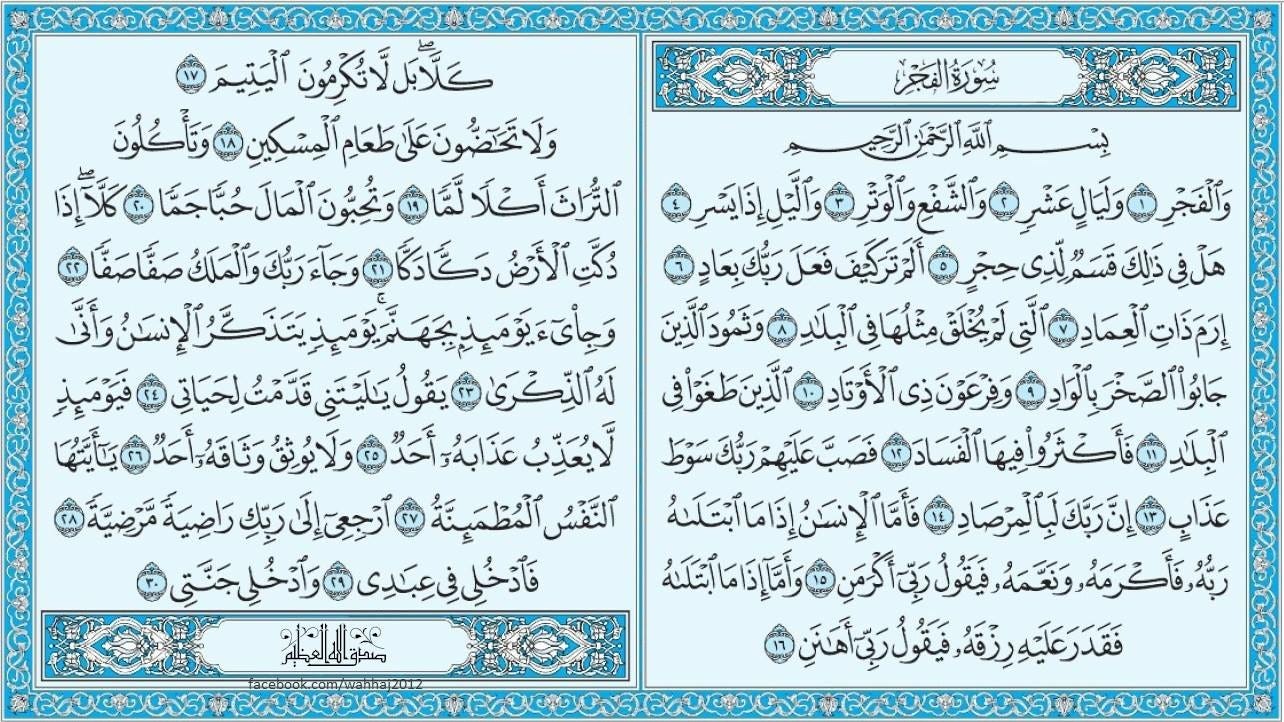 سُورَةُ الفَجْرِ
بِسْمِ ٱللَّهِ ٱلرَّحْمَٰنِ ٱلرَّحِيمِ
وَٱلْفَجْرِ ١ وَلَيَالٍ عَشْرٍ ٢ وَٱلشَّفْعِ وَٱلْوَتْرِ ٣ وَٱلَّيْلِ إِذَا يَسْرِ ٤
هَلْ فِى ذَٰلِكَ قَسَمٌ لِّذِى حِجْرٍ ٥ أَلَمْ تَرَ كَيْفَ فَعَلَ رَبُّكَ بِعَادٍ ٦
إِرَمَ ذَاتِ ٱلْعِمَادِ ٧ ٱلَّتِى لَمْ يُخْلَقْ مِثْلُهَا فِى ٱلْبِلَٰدِ ٨ وَثَمُودَ ٱلَّذِينَ
جَابُوا۟ ٱلصَّخْرَ بِٱلْوَادِ ٩ وَفِرْعَوْنَ ذِى ٱلْأَوْتَادِ ١٠ ٱلَّذِينَ طَغَوْا۟ فِى
ٱلْبِلَٰدِ ١١ فَأَكْثَرُوا۟ فِيهَا ٱلْفَسَادَ ١٢ فَصَبَّ عَلَيْهِمْ رَبُّكَ سَوْطَ
عَذَابٍ ١٣ إِنَّ رَبَّكَ لَبِٱلْمِرْصَادِ ١٤ فَأَمَّا ٱلْإِنسَٰنُ إِذَا مَا ٱبْتَلَىٰهُ
رَبُّهُۥ فَأَكْرَمَهُۥ وَنَعَّمَهُۥ فَيَقُولُ رَبِّىٓ أَكْرَمَنِ ١٥ وَأَمَّآ إِذَا مَا ٱبْتَلَىٰهُ
فَقَدَرَ عَلَيْهِ رِزْقَهُۥ فَيَقُولُ رَبِّىٓ أَهَٰنَنِ ١٦
كَلَّا ۖ بَل لَّا تُكْرِمُونَ ٱلْيَتِيمَ ١٧
وَلَا تَحَٰٓضُّونَ عَلَىٰ طَعَامِ ٱلْمِسْكِينِ ١٨ وَتَأْكُلُونَ
ٱلتُّرَاثَ أَكْلًا لَّمًّا ١٩ وَتُحِبُّونَ ٱلْمَالَ حُبًّا جَمًّا ٢٠ كَلَّآ ۖ إِذَا
دُكَّتِ ٱلْأَرْضُ دَكًّا دَكًّا ٢١ وَجَآءَ رَبُّكَ وَٱلْمَلَكُ صَفًّا صَفًّا ٢٢
وَجِا۟ىٓءَ يَوْمَئِذٍۭ بِجَهَنَّمَ ۚ يَوْمَئِذٍ يَتَذَكَّرُ ٱلْإِنسَٰنُ وَأَنَّىٰ
لَهُ ٱلذِّكْرَىٰ ٢٣ يَقُولُ يَٰلَيْتَنِى قَدَّمْتُ لِحَيَاتِى ٢٤ فَيَوْمَئِذٍ
لَّا يُعَذِّبُ عَذَابَهُۥٓ أَحَدٌ ٢٥ وَلَا يُوثِقُ وَثَاقَهُۥٓ أَحَدٌ ٢٦ يَٰٓأَيَّتُهَا
ٱلنَّفْسُ ٱلْمُطْمَئِنَّةُ ٢٧ ٱرْجِعِىٓ إِلَىٰ رَبِّكِ رَاضِيَةً مَّرْضِيَّةً ٢٨
فَٱدْخُلِى فِى عِبَٰدِى ٢٩ وَٱدْخُلِى جَنَّتِى ٣٠
صدق الله العظيم
facebook.com/wahhaj2012